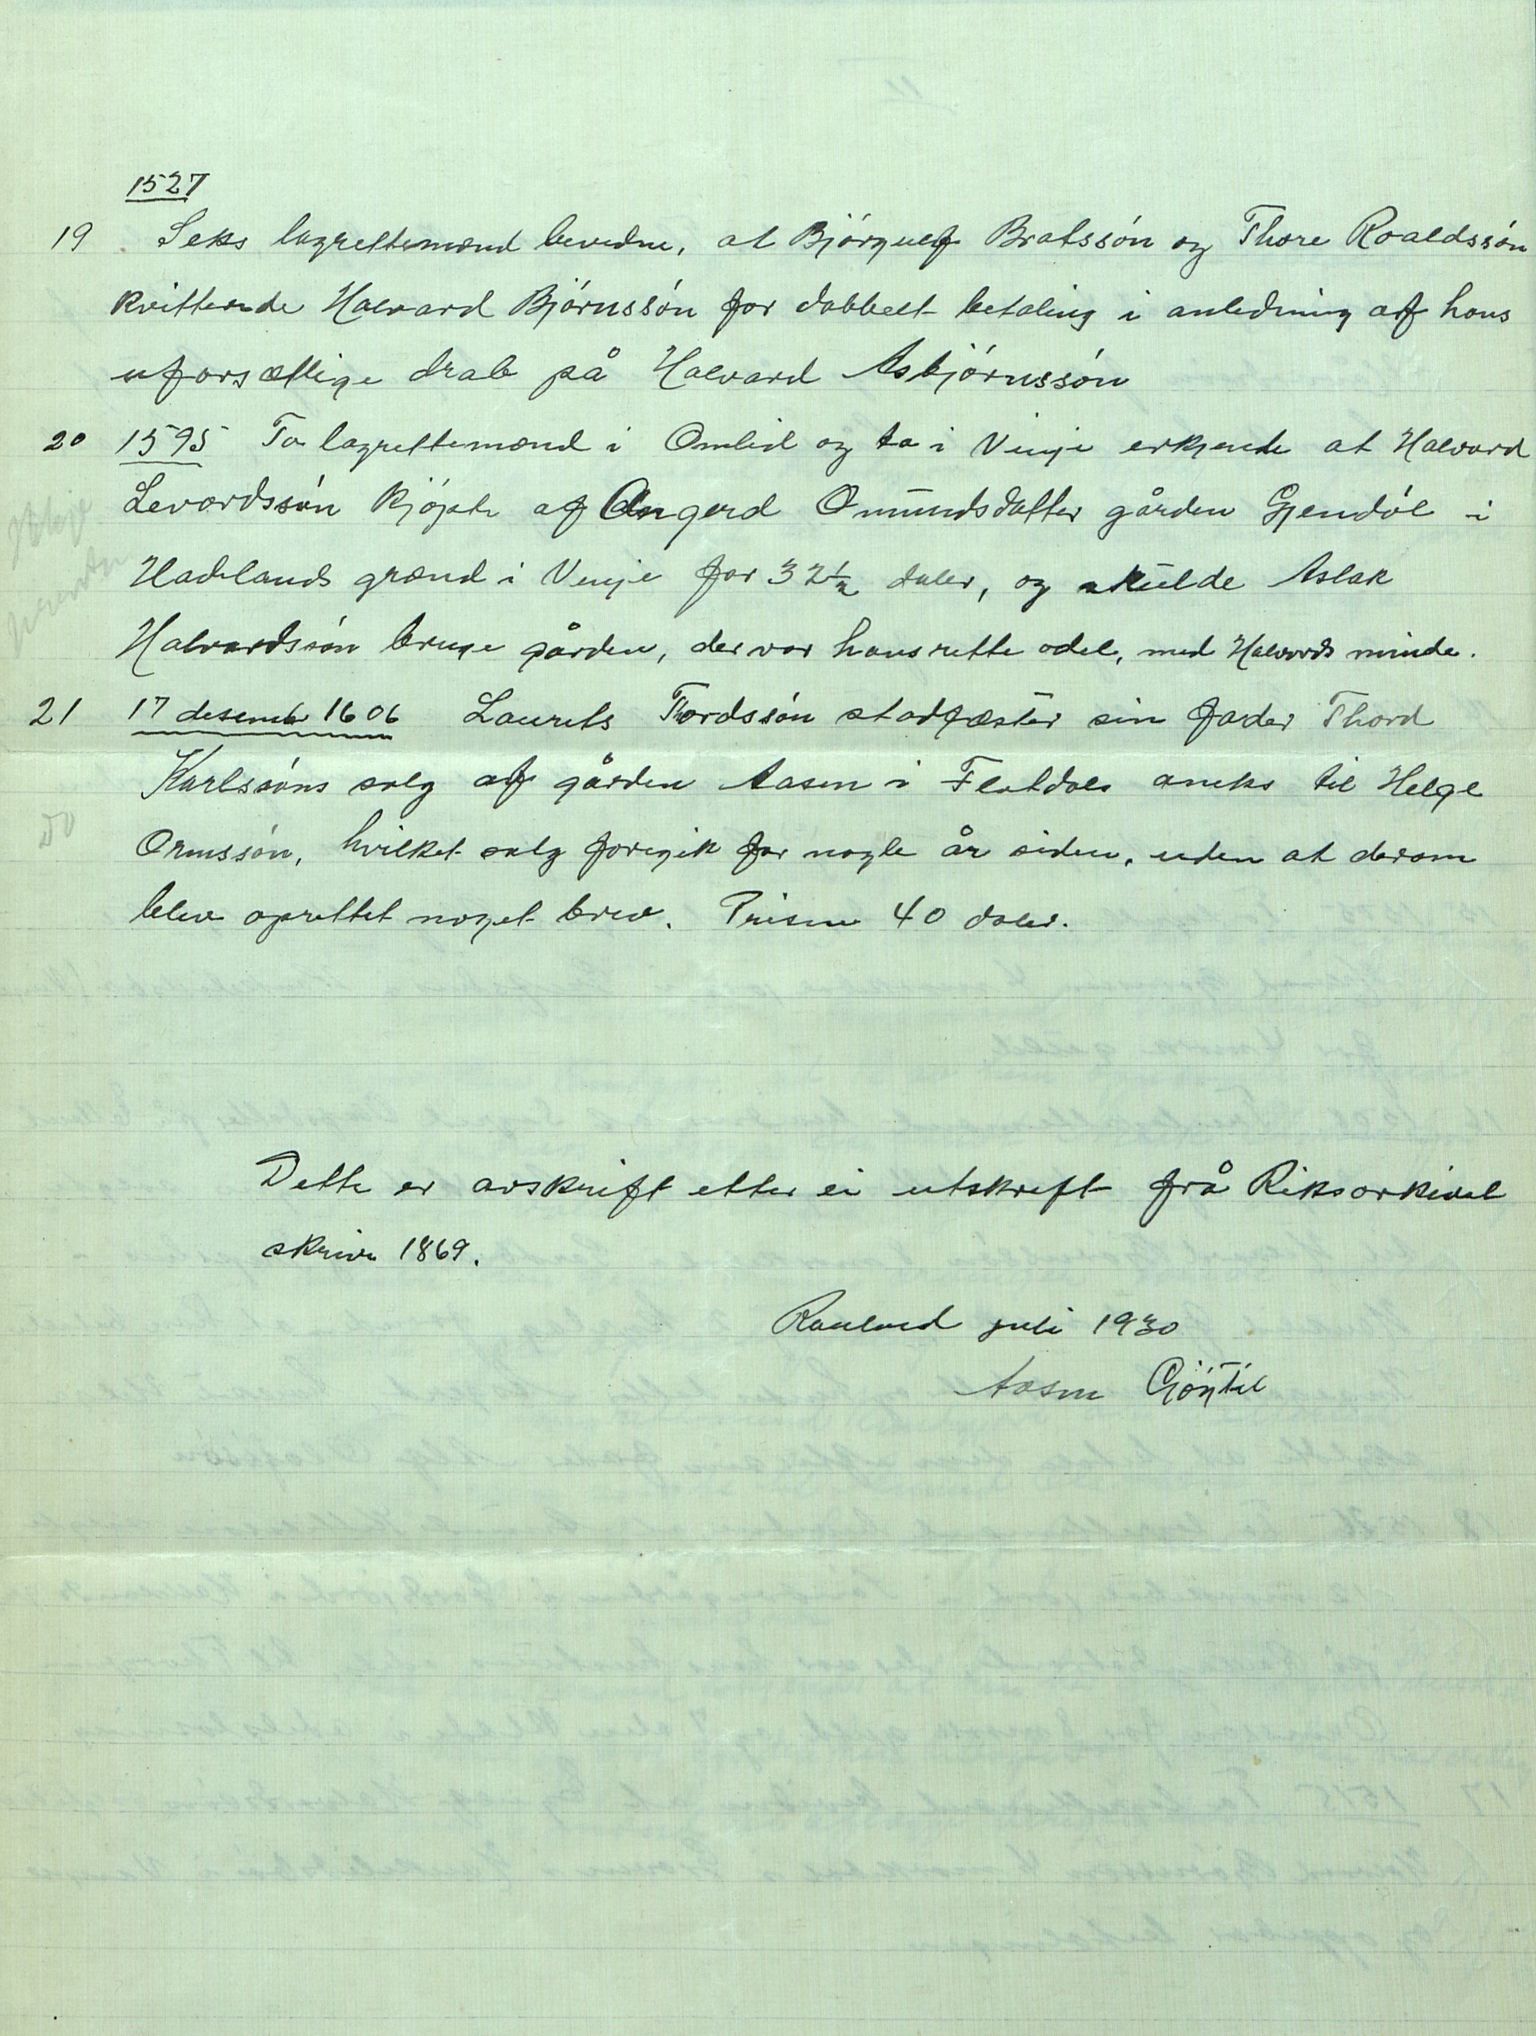 1527
19 Seks lagrettemænd bevidne, at Björguef Bratssón og Thore Roaldssón
kvitterede Halvard Björnssón for dobbelt betaling i anledning af hans
uforsætlige drab på Halvard Asbjörnssón
20 1595 To lagrettemænd i Omlid og to i Vinje erkjende at Halvard
Levordssón kjöpte af Angerd Omundsdatter gården Gjendöl i
Hadelands grænd i Vinje for 32½ daler, og skulde Aslak
Halvordssón bruge gården, der var hans rette odel, med Halvords minde.
21 17 desember 1606 Laurits Tordssón stadfæster sin fader Thord
Karlssóns salg af gården Aasen i Flatdals aneks til Helge
Ormssón, hvilket salg foregik for nogle år siden, uden at derom
blev oprettet noget brev. Prisen 40 daler.
Do
Dette er avskrift etter ei utskrift frå Riksarkivet
skrive 1869.
Rauland juli 1930
Aasm Gjöytil